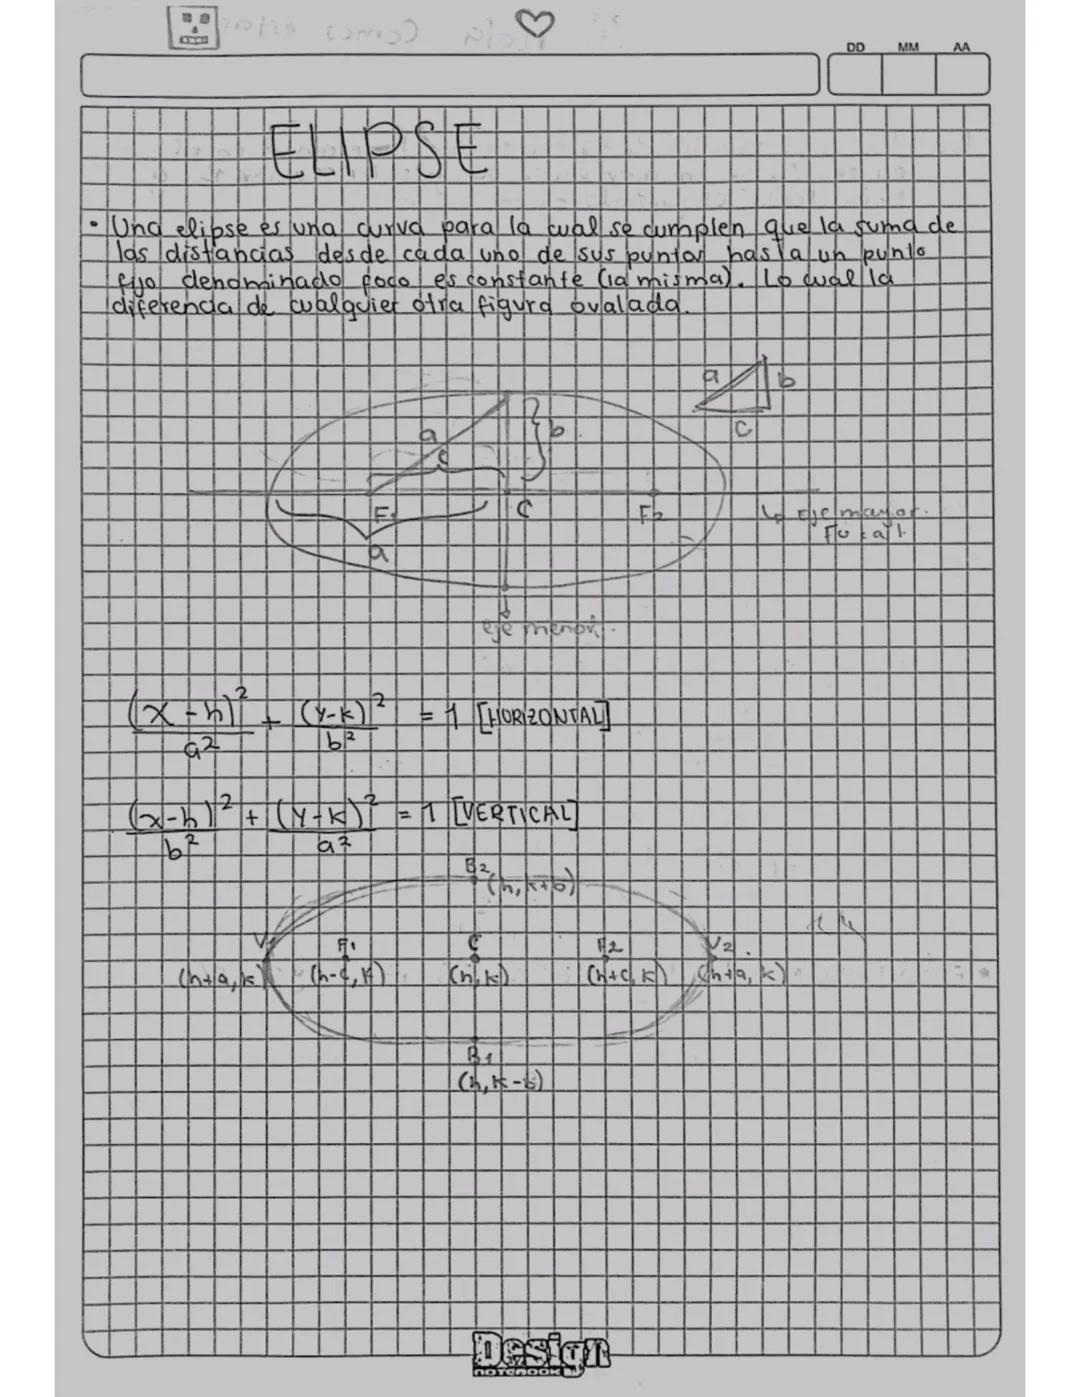 DD MM AA
ELIPSE
• Una elipse es una curva para la cual se cumplen que la suma de
las distancias desde cada uno de sus puntos hasta un punto
fijo denominado foco es constante (la misma). Lo cual la
diferencia de cualquier otra figura ovalada.
a b
c
a c b
F₁ C F₂
↳ eje mayor.
a
eje menor.
(x-h)²/a² + (y-k)²/b² = 1 [HORIZONTAL]
(x-h)²/b² + (y-k)²/a² = 1 [VERTICAL]
B₂
(h, k+b)
V F₁ C F₂ V₂
(h+a, k) (h-c, k) (h, k) (h+c, k) (h+a, k)
B₁
(h, k-b)
Design
NOTEBOOK